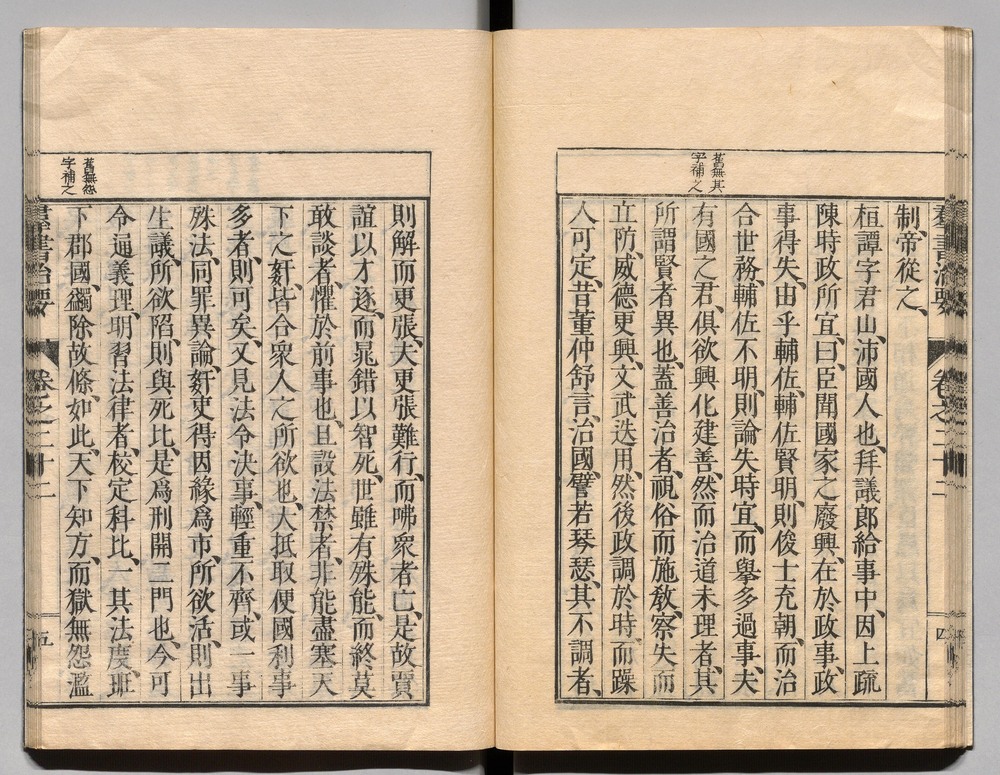 羣書治要 卷之二十二 四
舊無其
字補之
制、帝從之、
桓譚字君山、沛國人也、拜議郎給事中、因上疏
陳時政所宜、曰、臣聞國家之廢興、在於政事、政
事得失、由乎輔佐、輔佐賢明、則俊士充朝、而治
合世務、輔佐不明、則論失時宜、而擧多過事、夫
有國之君、俱欲興化建善、然而治道未理者、其
所謂賢者異也、蓋善治者、視俗而施敎、察失而
立防、威德更興、文武迭用、然後政調於時、而躁
人可定、昔董仲舒言、治國譬若琴瑟、其不調者、
則解而更張、夫更張難行、而咈衆者亡、是故賈
誼以才逐、而晁錯以智死、世雖有殊能、而終莫
敢談者、懼於前事也、且設法禁者、非能盡塞天
下之姧、皆合衆人之所欲也、大抵取便國利事
多者、則可矣、又見法令決事、輕重不齊、或一事
殊法、同罪異論、姧吏得因緣爲市、所欲活、則出
生議、所欲陷、則與死比、是爲刑開二門也、今可
令通義理、明習法律者、校定科比、一其法度、班
下郡國、蠲除故條、如此、天下知方、而獄無怨濫
舊無怨
字補之
羣書治要 卷之二十二 五